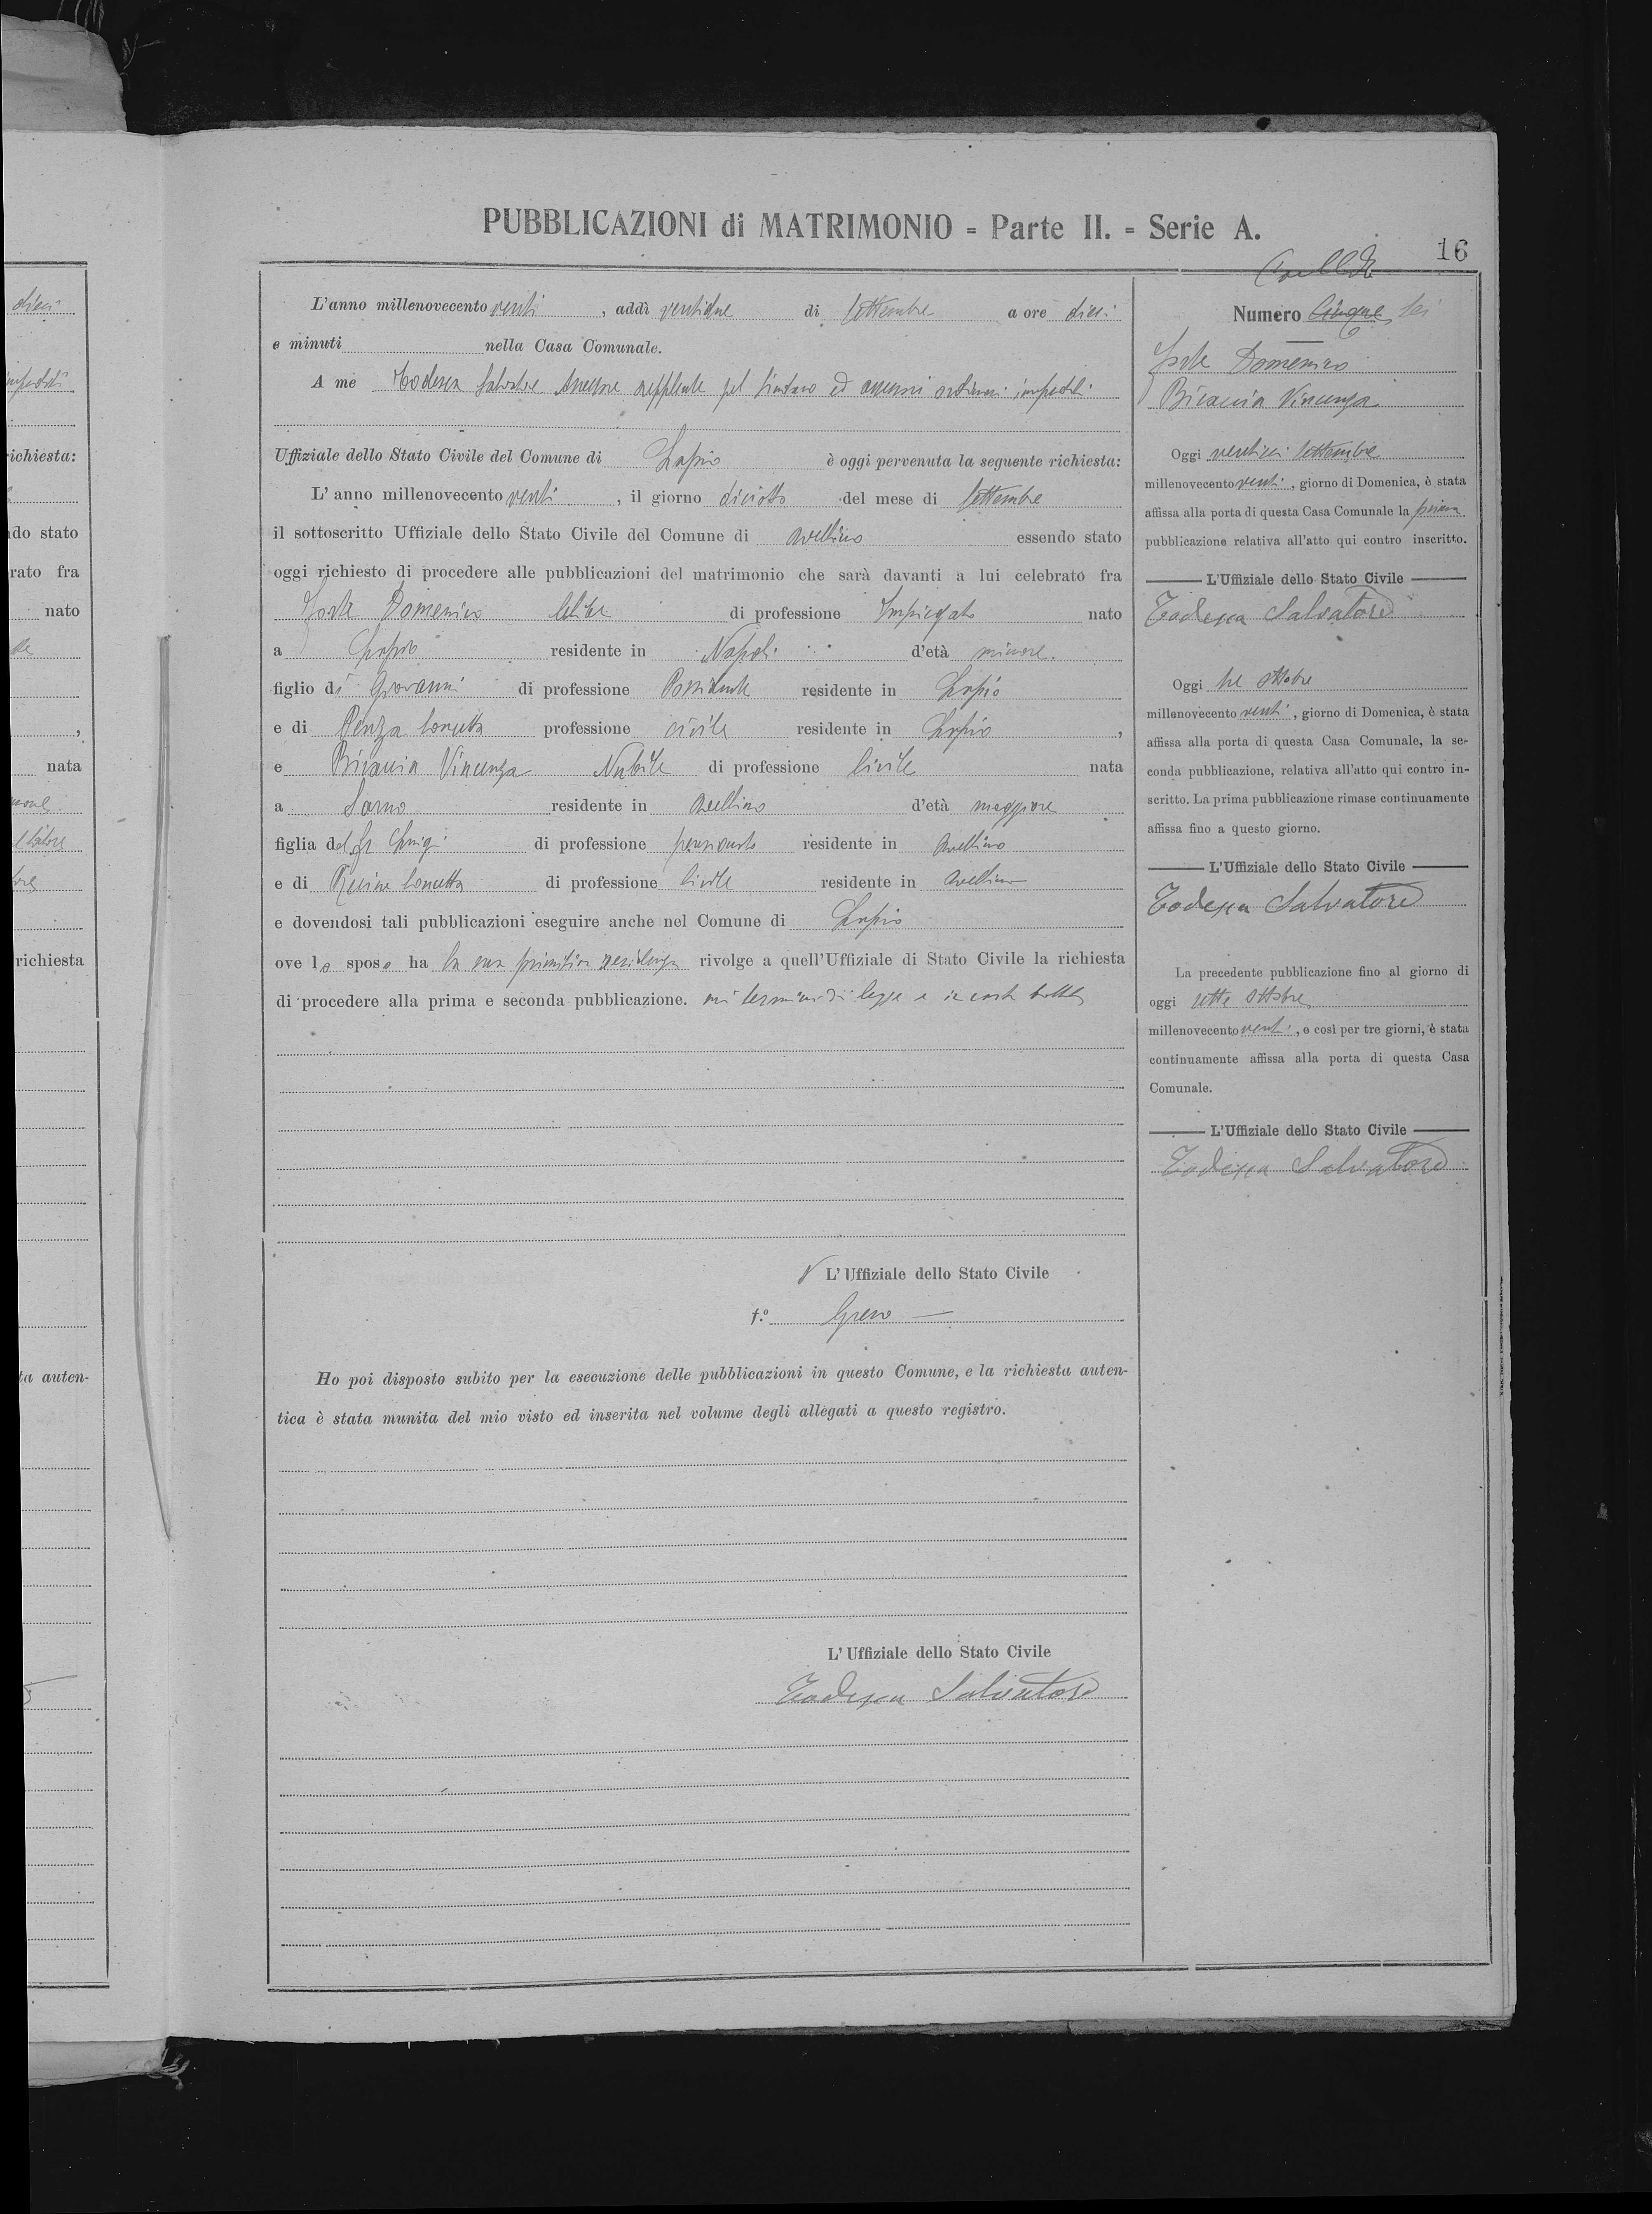 PUBBLICAZIONI di MATRIMONIO = Parte II. = Serie A.
16
L'anno millenovecento venti , addì ventidue di Settembre a ore dieci
e minuti nella Casa Comunale.
A me Todesca Salvatore Assessore supplente pel Sindaco ed assessori ordinari impediti
Uffiziale dello Stato Civile del Comune di Lapio è oggi pervenuta la seguente richiesta:
L'anno millenovecento venti , il giorno diciotto del mese di Settembre
il sottoscritto Uffiziale dello Stato Civile del Comune di Avellino essendo stato
oggi richiesto di procedere alle pubblicazioni del matrimonio che sarà davanti a lui celebrato fra
Domenico Celibe di professione Impiegato nato
a Lapio residente in Napoli d'età minore.
figlio di Giovanni di professione Possidente residente in Lapio
e di Penza Concetta professione civile residente in Lapio ,
e Vincenza Nubile di professione Civile nata
a Sarno residente in Avellino d'età maggiore
figlia del fu Luigi di professione residente in Avellino
e di Concetta di professione Civile residente in Avellino
e dovendosi tali pubblicazioni eseguire anche nel Comune di Lapio
ove lo sposo ha la sua primitiva residenza rivolge a quell'Uffiziale di Stato Civile la richiesta
di procedere alla prima e seconda pubblicazione. nei termini di legge e in carta
L'Uffiziale dello Stato Civile
f.º
Ho poi disposto subito per la esecuzione delle pubblicazioni in questo Comune, e la richiesta auten-
tica è stata munita del mio visto ed inserita nel volume degli allegati a questo registro.
L'Uffiziale dello Stato Civile
Todesca Salvatore
Numero Cinque Sei
Domenico
Vincenza
Oggi ventisei Settembre
millenovecento venti , giorno di Domenica, è stata
affissa alla porta di questa Casa Comunale la prima
pubblicazione relativa all'atto qui contro inscritto.
L'Uffiziale dello Stato Civile
Todesca Salvatore
Oggi tre ottobre
millenovecento venti , giorno di Domenica, è stata
affissa alla porta di questa Casa Comunale, la se-
conda pubblicazione, relativa all'atto qui contro in-
scritto. La prima pubblicazione rimase continuamente
affissa fino a questo giorno.
L'Uffiziale dello Stato Civile
Todesca Salvatore
La precedente pubblicazione fino al giorno di
oggi sette ottobre
millenovecento venti , e così per tre giorni, è stata
continuamente affissa alla porta di questa Casa
Comunale.
L'Uffiziale dello Stato Civile
Todesca Salvatore
dieci
impediti
richiesta:
do stato
rato fra
nato
,
nata
richiesta
ta auten-